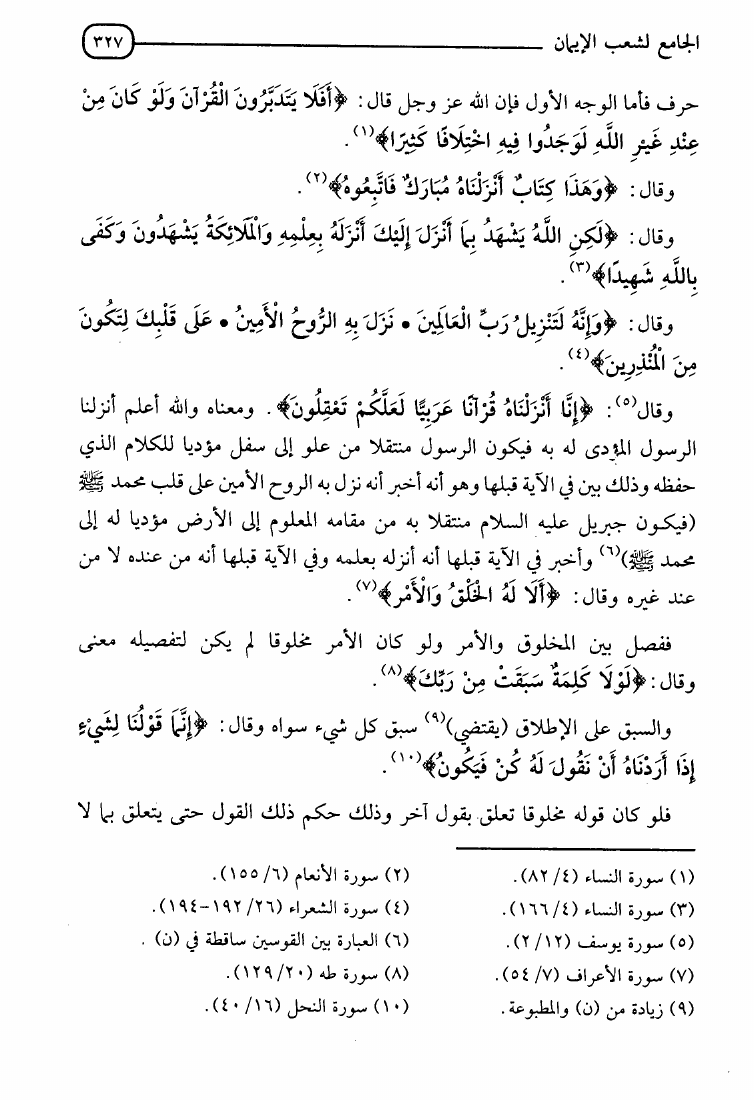 الجامع لشعب الإيمان ٣٢٧
حرف فأما الوجه الأول فإن الله عز وجل قال: ﴿أَفَلَا يَتَدَبَّرُونَ الْقُرْآنَ وَلَوْ كَانَ مِنْ
عِنْدِ غَيْرِ اللَّهِ لَوَجَدُوا فِيهِ اخْتِلَافًا كَثِيرًا﴾(١).
وقال: ﴿وَهَذَا كِتَابٌ أَنْزَلْنَاهُ مُبَارَكٌ فَاتَّبِعُوهُ﴾(٢).
وقال: ﴿لَكِنِ اللَّهُ يَشْهَدُ بِمَا أَنْزَلَ إِلَيْكَ أَنْزَلَهُ بِعِلْمِهِ وَالْمَلَائِكَةُ يَشْهَدُونَ وَكَفَى
بِاللَّهِ شَهِيدًا﴾(٣).
وقال: ﴿وَإِنَّهُ لَتَنْزِيلُ رَبِّ الْعَالَمِينَ • نَزَلَ بِهِ الرُّوحُ الْأَمِينُ • عَلَى قَلْبِكَ لِتَكُونَ
مِنَ الْمُنْذِرِينَ﴾(٤).
وقال(٥): ﴿إِنَّا أَنْزَلْنَاهُ قُرْآنًا عَرَبِيًّا لَعَلَّكُمْ تَعْقِلُونَ﴾. ومعناه والله أعلم أنزلنا
الرسول المؤدى له به فيكون الرسول منتقلا من علو إلى سفل مؤديا للكلام الذي
حفظه وذلك بين في الآية قبلها وهو أنه أخبر أنه نزل به الروح الأمين على قلب محمد ﷺ
(فيكون جبريل عليه السلام منتقلا به من مقامه المعلوم إلى الأرض مؤديا له إلى
محمد ﷺ)(٦) وأخبر في الآية قبلها أنه أنزله بعلمه وفي الآية قبلها أنه من عنده لا من
عند غيره وقال: ﴿أَلَا لَهُ الْخَلْقُ وَالْأَمْرُ﴾(٧).
ففصل بين المخلوق والأمر ولو كان الأمر مخلوقا لم يكن لتفصيله معنى
وقال: ﴿لَوْلَا كَلِمَةٌ سَبَقَتْ مِنْ رَبِّكَ﴾(٨).
والسبق على الإطلاق (يقتضي)(٩) سبق كل شيء سواه وقال: ﴿إِنَّمَا قَوْلُنَا لِشَيْءٍ
إِذَا أَرَدْنَاهُ أَنْ نَقُولَ لَهُ كُنْ فَيَكُونُ﴾(١٠).
فلو كان قوله مخلوقا تعلق بقول آخر وذلك حكم ذلك القول حتى يتعلق بما لا
(١) سورة النساء (٨٢/٤). (٢) سورة الأنعام (١٥٥/٦).
(٣) سورة النساء (١٦٦/٤). (٤) سورة الشعراء (١٩٢/٢٦-١٩٤).
(٥) سورة يوسف (٢/١٢). (٦) العبارة بين القوسين ساقطة في (ن) .
(٧) سورة الأعراف (٥٤/٧). (٨) سورة طه (١٢٩/٢٠).
(٩) زيادة من (ن) والمطبوعة. (١٠) سورة النحل (٤٠/١٦).